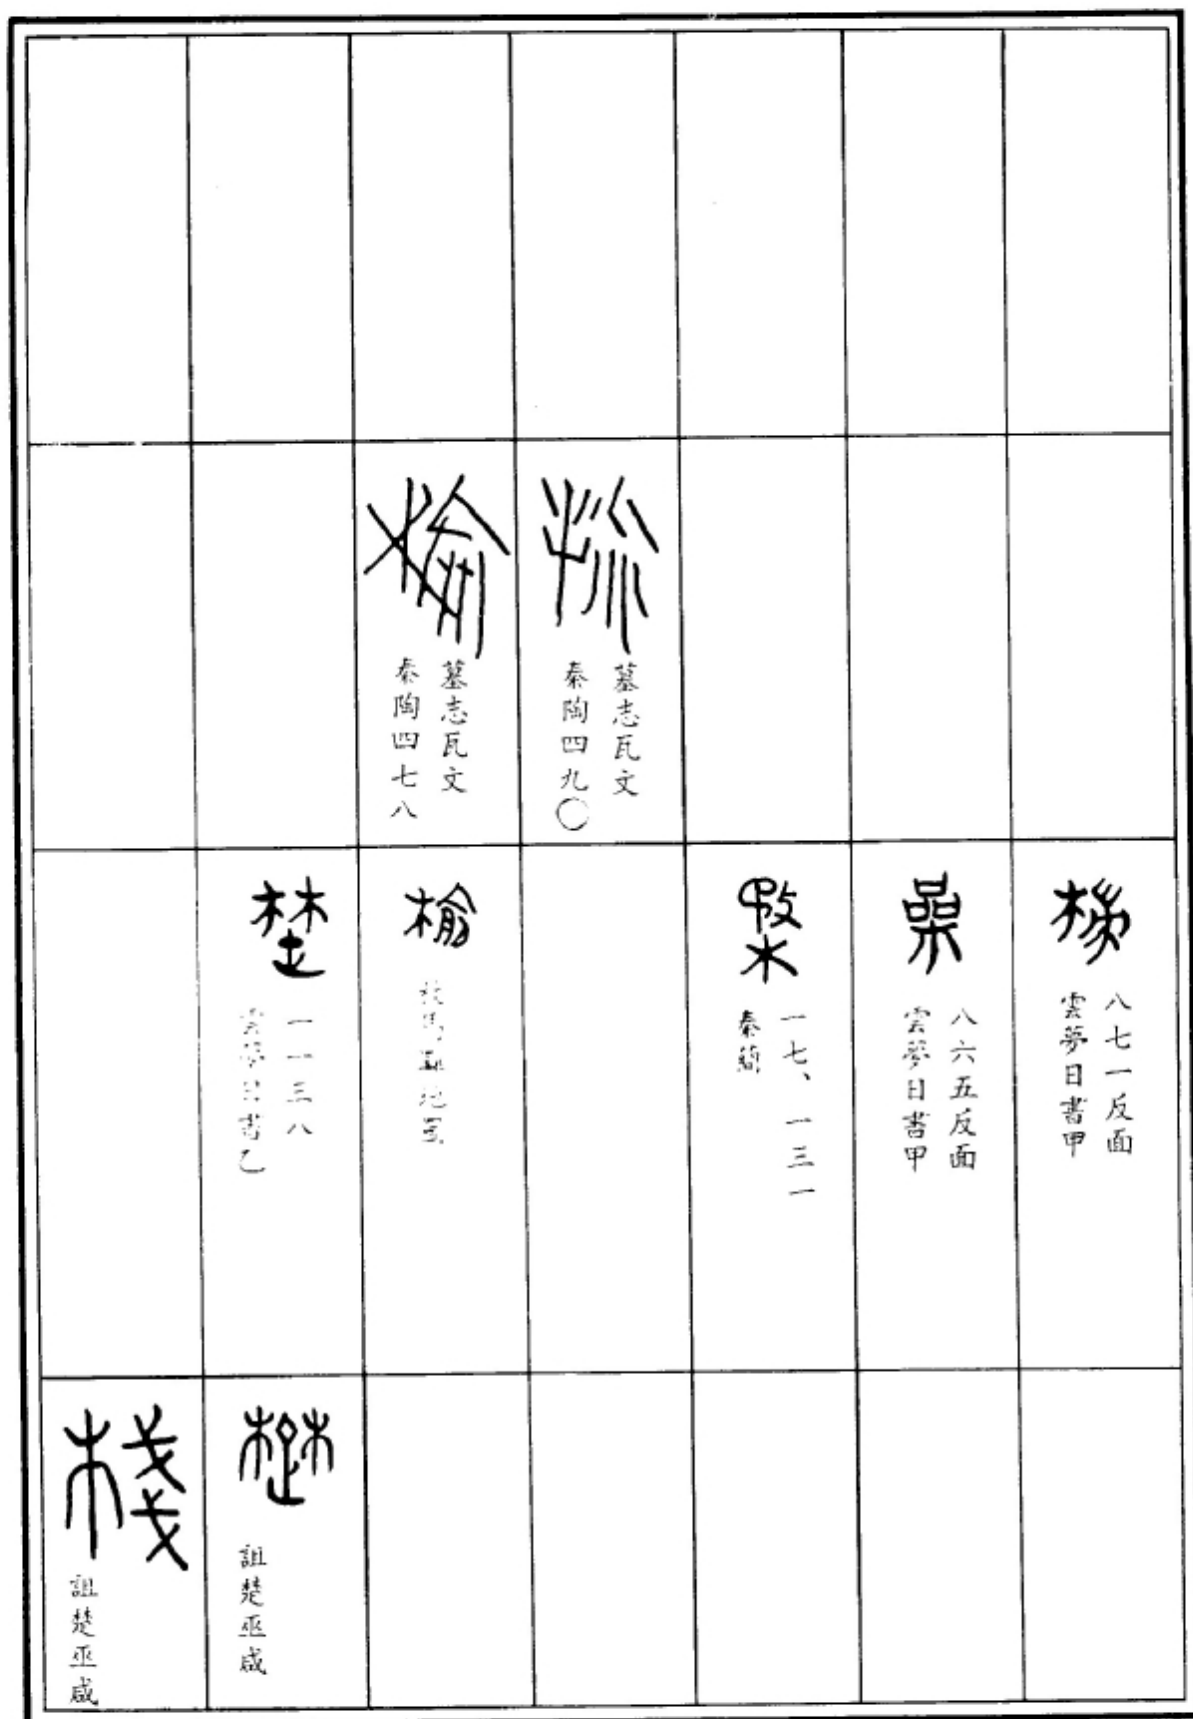 墓志瓦文
秦陶四九〇
墓志瓦文
秦陶四七八
梯
八七一反面
雲夢日書甲
喿
八六五反面
雲夢日書甲
一七、一三一
秦簡
榆
放馬灘地圖
楚
一一三八
雲夢日書乙
楚
詛楚巫咸
棧
詛楚巫咸